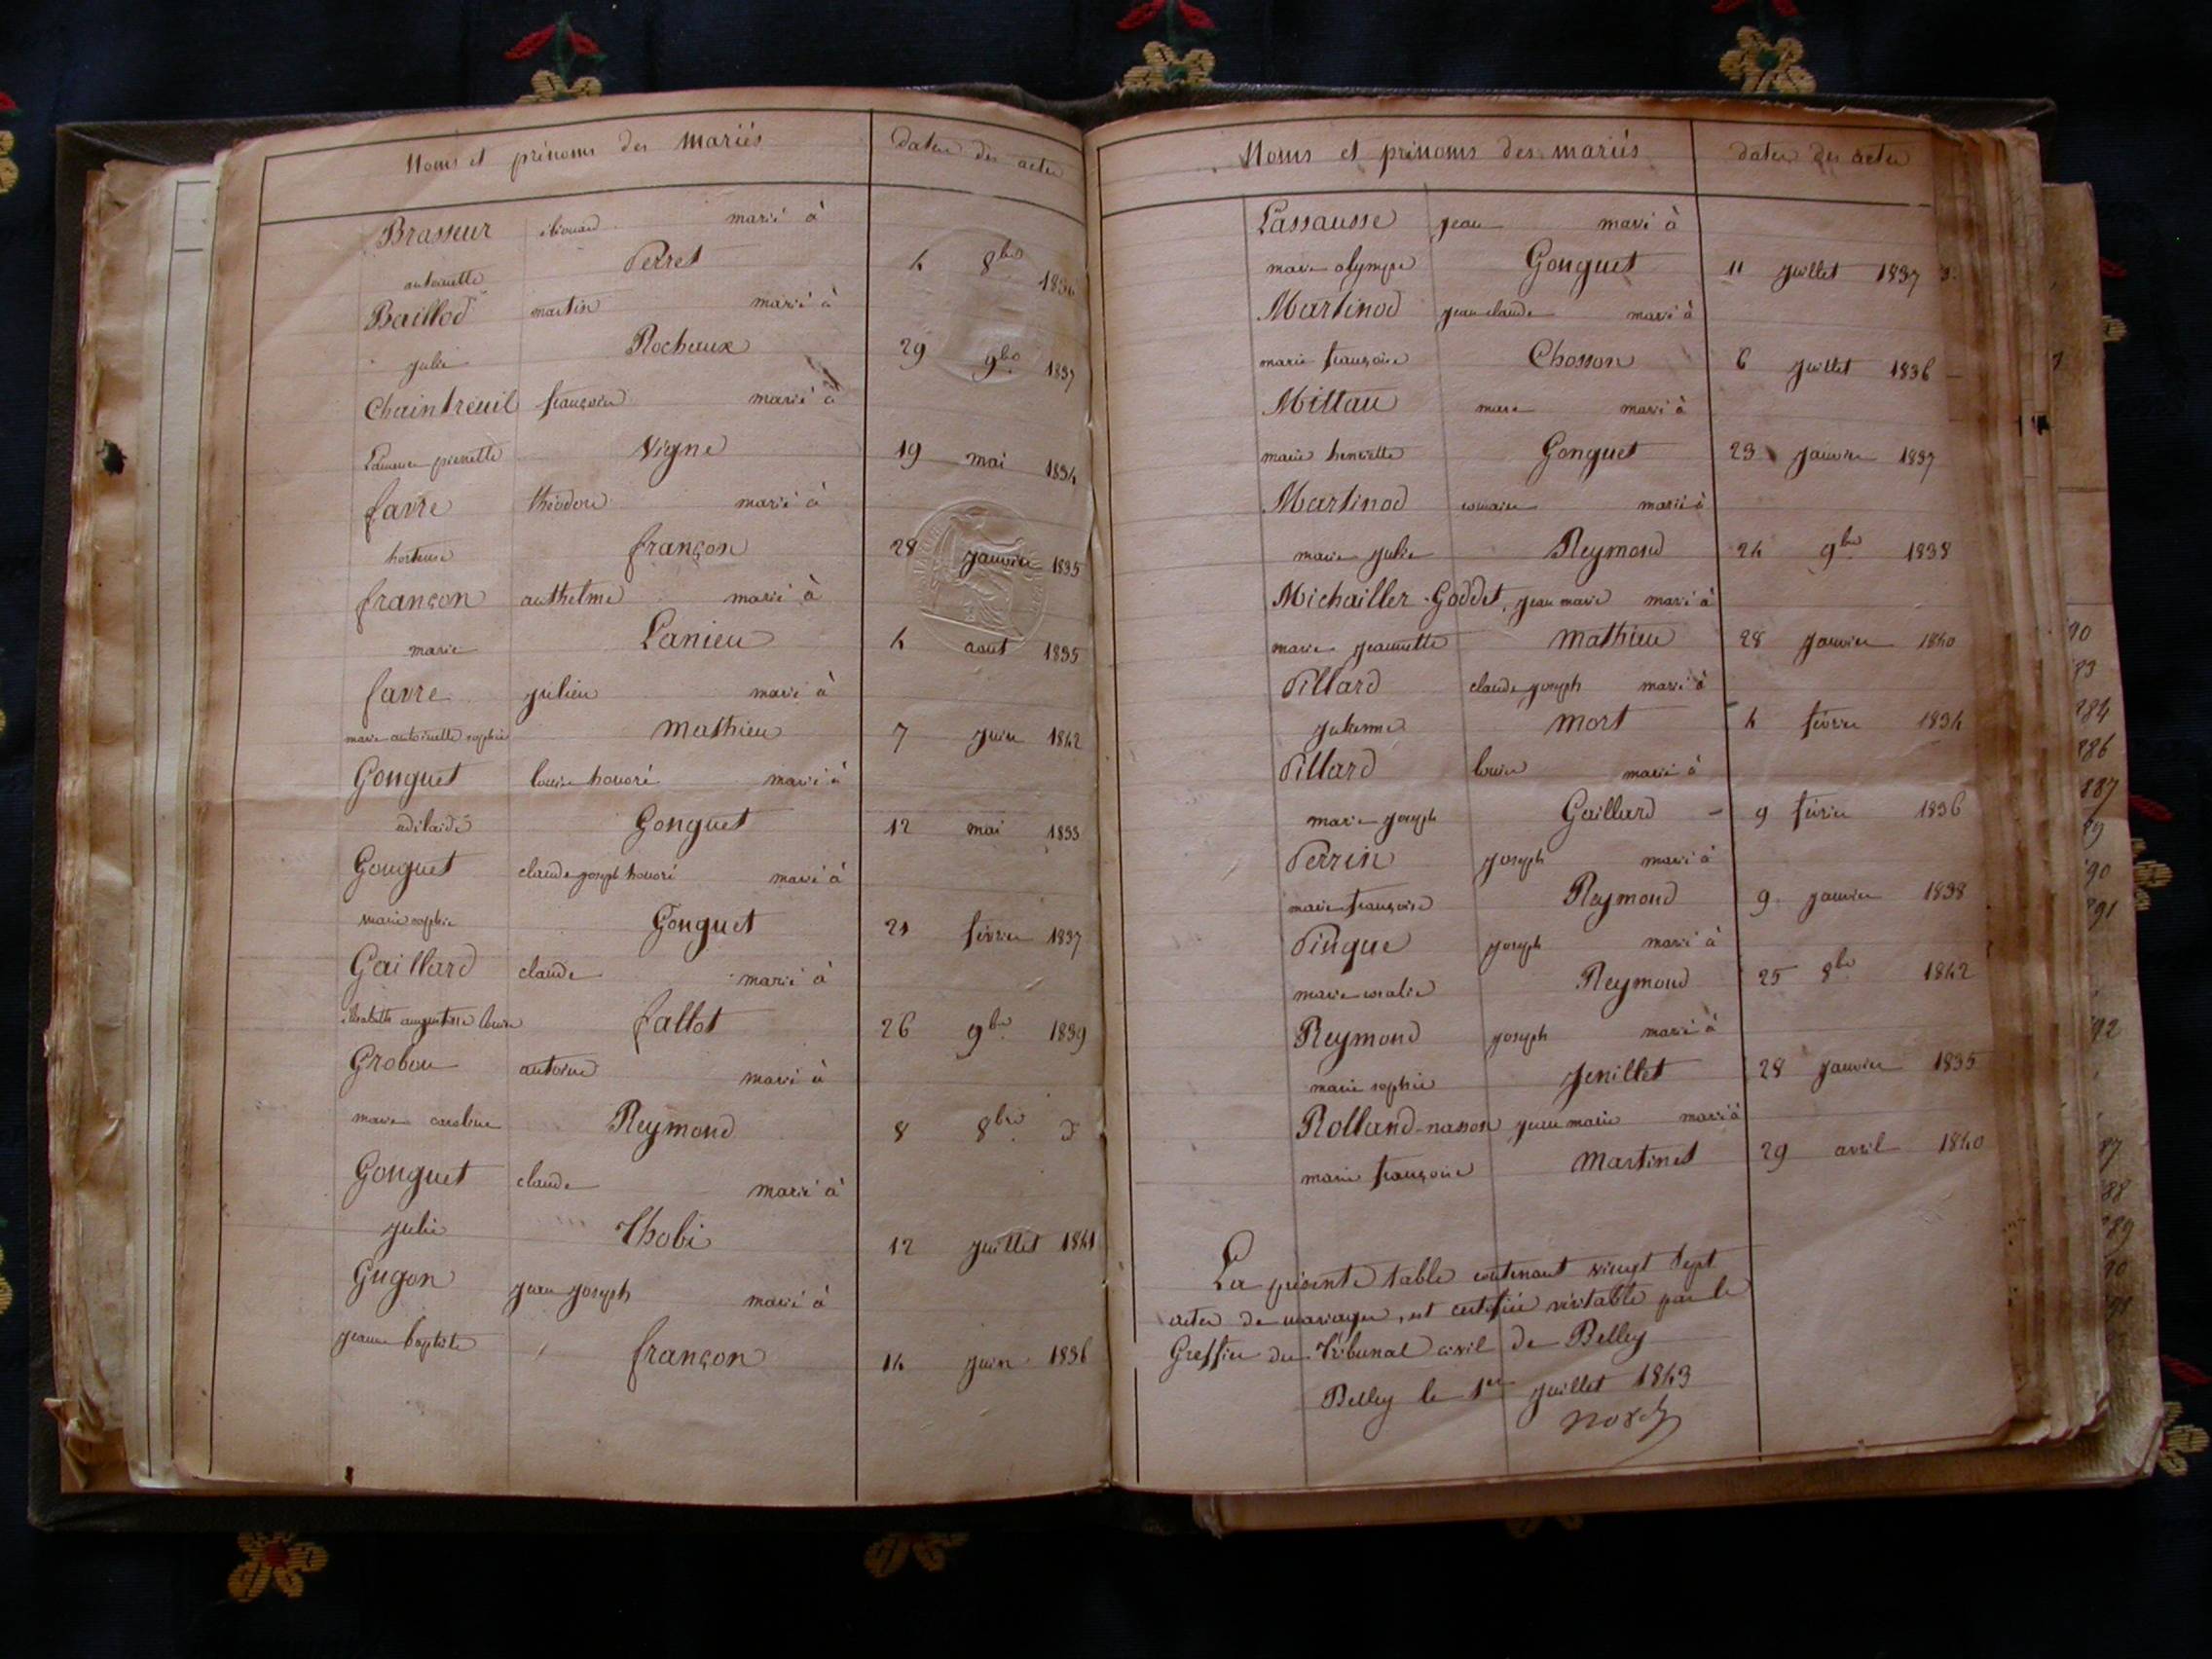 Noms et prénoms des mariés dates des actes
Brasseur édouard marié à
antoinette Perret 4 8bre 1836
Baillod martin marié à
julie Rochaux 29 9bre 1837
Chaintreuil françois marié à
pierrette Vigne 19 mai 1834
favre théodore marié à
hortense françon 28 janvier 1835
françon anthelme marié à
marie Lanieu 4 aout 1835
favre julien marié à
marie antoinette sophie Mathieu 7 juin 1842
Gonguet louis honoré marié à
adélaïde Gonguet 12 mai 1833
Gonguet claude joseph honoré marié à
marie sophie Gonguet 21 février 1837
Gaillard claude marié à
élisabeth augustine louise fallot 26 9bre 1839
Grobon antoine marié à
marie caroline Reymond 8 8bre
Gonguet claude marié à
julie Thobi 12 juillet 1841
Gugon jean joseph marié à
jeanne baptiste françon 14 juin 1836
Noms et prénoms des mariés dates des actes
Lassausse jean marié à
marie olympe Gonguet 11 juillet 1837
Martinod jean claude marié à
marie françoise Chosson 6 juillet 1836
Mittau marc marié à
marie henriette Gonguet 23 janvier 1837
Martinod romain marié à
marie julie Reymond 24 9bre 1838
Michailler-Goddet, jean marie marié à
marie jeannette Mathieu 28 janvier 1840
Pillard claude joseph marié à
julienne Mort 4 février 1834
Pillard louis marié à
marie joseph Gaillard 9 février 1836
Perrin joseph marié à
marie françoise Reymond 9 janvier 1838
Pingue joseph marié à
marie rosalie Reymond 25 8bre 1842
Reymond joseph marié à
marie sophie Jenillet 28 janvier 1835
Rolland-nasson jean marie marié à
marie françoise Martinet 29 avril 1840
La présente table contenant vingt sept
actes de mariages, est certifiée véritable par le
Greffier du Tribunal civil de Belley
Belley le 1er juillet 1843